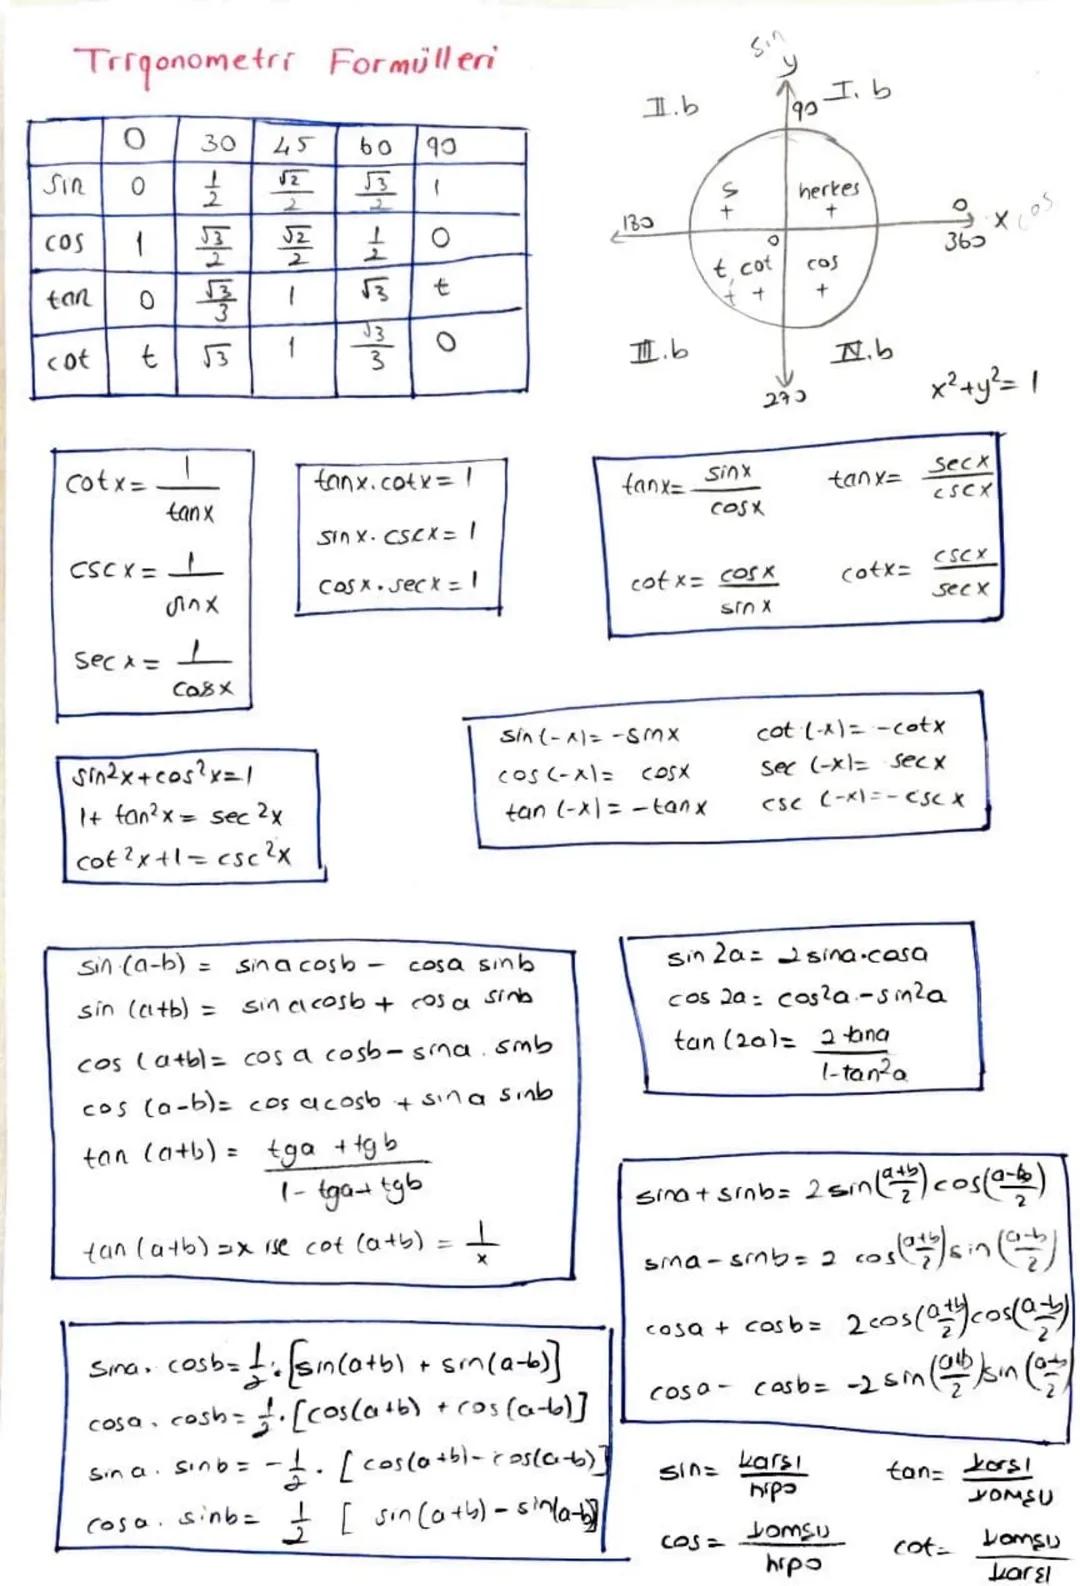 Trigonometri Formülleri
0 30 45 60 90
sin 0 1/2 √2/2 √3/2 1
cos 1 √3/2 √2/2 1/2 0
tan 0 √3/3 1 √3 t
cot t √3 1 √3/3 0
sin
y
II.b 90 I.b
s + herkes +
180 0 0 360 x cos
t, cot + + cos +
III.b IV.b
270
x²+y²=1
cotx = 1/tanx
cscx = 1/sinx
secx = 1/cosx
tanx.cotx=1
sinx.cscx=1
cosx.secx=1
tanx= sinx/cosx tanx= secx/cscx
cotx= cosx/sinx cotx= cscx/secx
sin²x+cos²x=1
1+tan²x= sec²x
cot²x+1= csc²x
sin(-x)= -sinx cot(-x)= -cotx
cos(-x)= cosx sec(-x)= secx
tan(-x)= -tanx csc(-x)= -cscx
sin(a-b) = sina cosb - cosa sinb
sin(a+b) = sina cosb + cosa sinb
cos(a+b)= cosa cosb - sina . sinb
cos(a-b)= cosa cosb + sina sinb
tan(a+b) = tga + tgb / 1- tga+tgb
tan(a+b)=x ise cot(a+b) = 1/x
sin2a= 2sina.cosa
cos2a= cos²a-sin²a
tan(2a)= 2tana / 1-tan²a
sina + sinb= 2sin(a+b/2)cos(a-b/2)
sina - sinb= 2cos(a+b/2)sin(a-b/2)
cosa + cosb= 2cos(a+b/2)cos(a-b/2)
cosa - cosb= -2sin(a+b/2)sin(a-b/2)
sina . cosb= 1/2.[sin(a+b) + sin(a-b)]
cosa . cosb= 1/2.[cos(a+b) + cos(a-b)]
sina . sinb= -1/2.[cos(a+b)-cos(a-b)]
cosa . sinb= 1/2 [sin(a+b)-sin(a-b)]
sin= karşı/hipo tan= karşı/komşu
cos= komşu/hipo cot= komşu/karşı